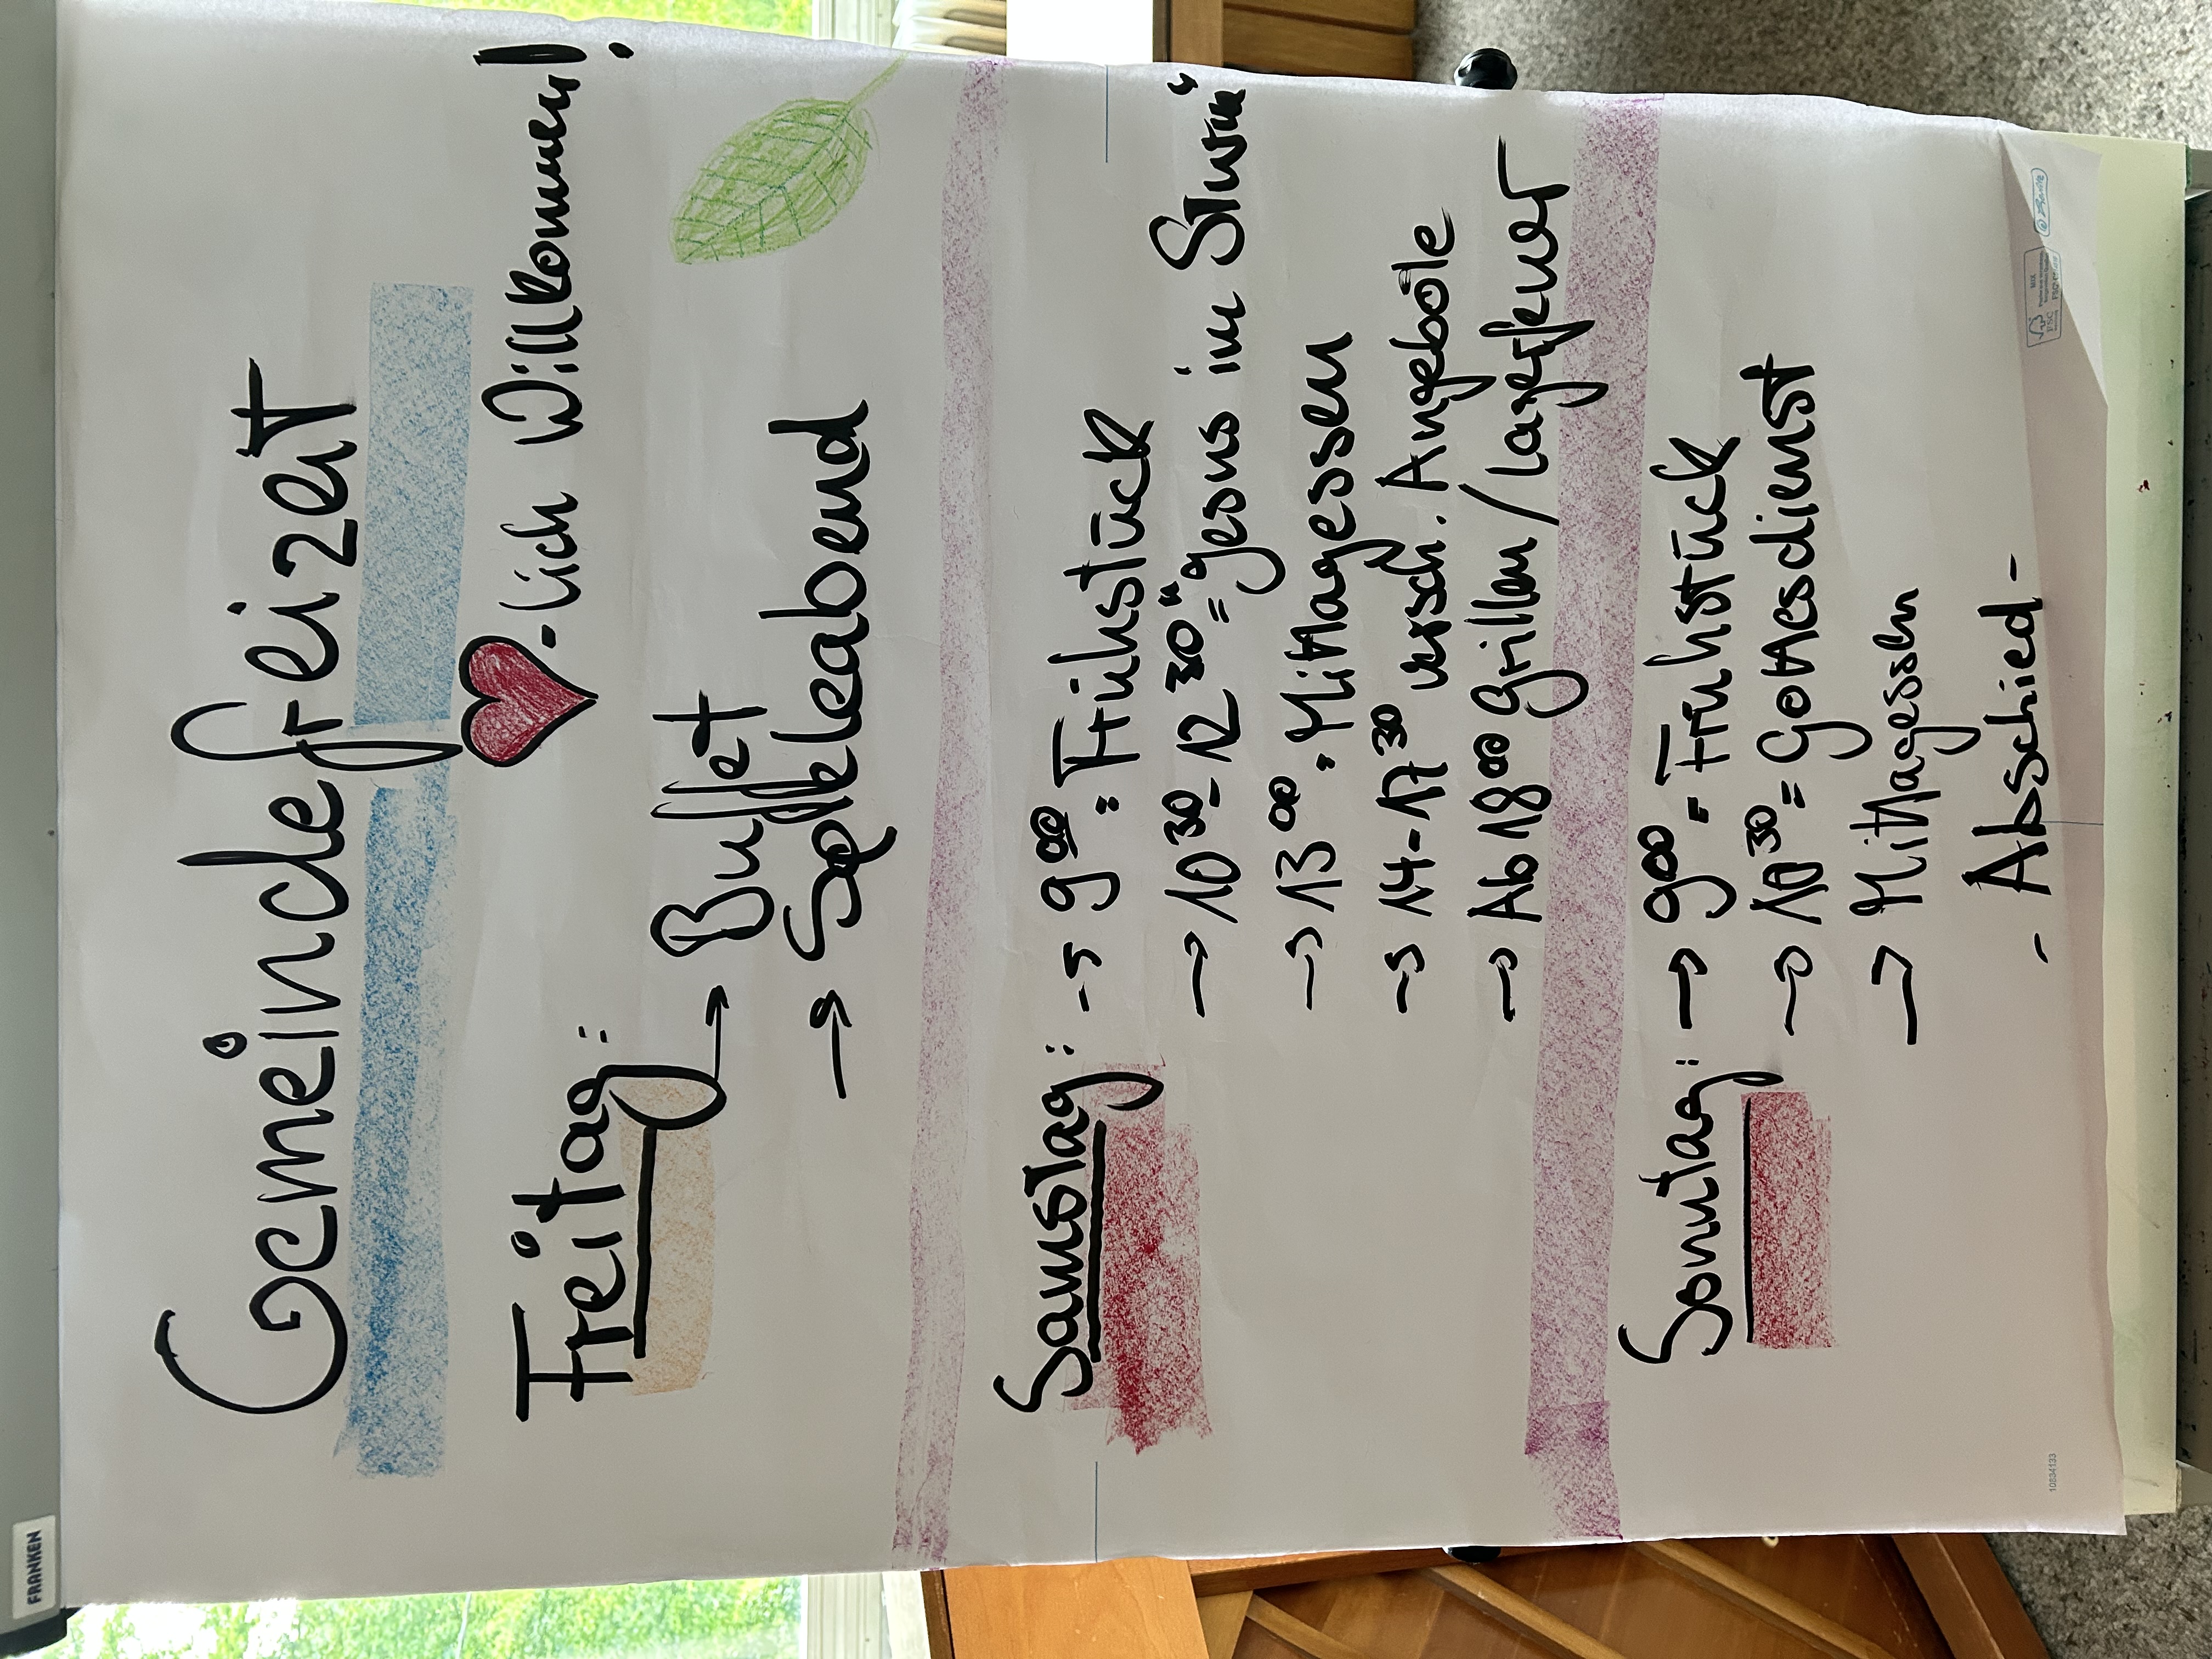 Gemeindefreizeit
❤-lich Willkommen!
Freitag:
→ Buffet
→ Spieleabend
Samstag:
→ 9⁰⁰: Frühstück
→ 10³⁰-12³⁰ = "Jesus im Sturm"
→ 13⁰⁰: Mittagessen
→ 14-17³⁰ versch. Angebote
→ Ab 18⁰⁰ Grillen / Lagerfeuer
Sonntag:
→ 9⁰⁰ = Frühstück
→ 10³⁰ = Gottesdienst
→ Mittagessen
- Abschied -
FRANKEN
10834133
FSC
MIX